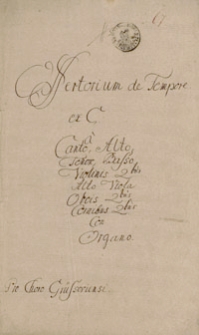 Offertorium de Tempore
ex C
a
Canto, Alto
Tenor, Basso
Violinis 2bis
Alto Viola
Obois 2bis
Cornibus 2bis
Con
Organo
Pro Choro